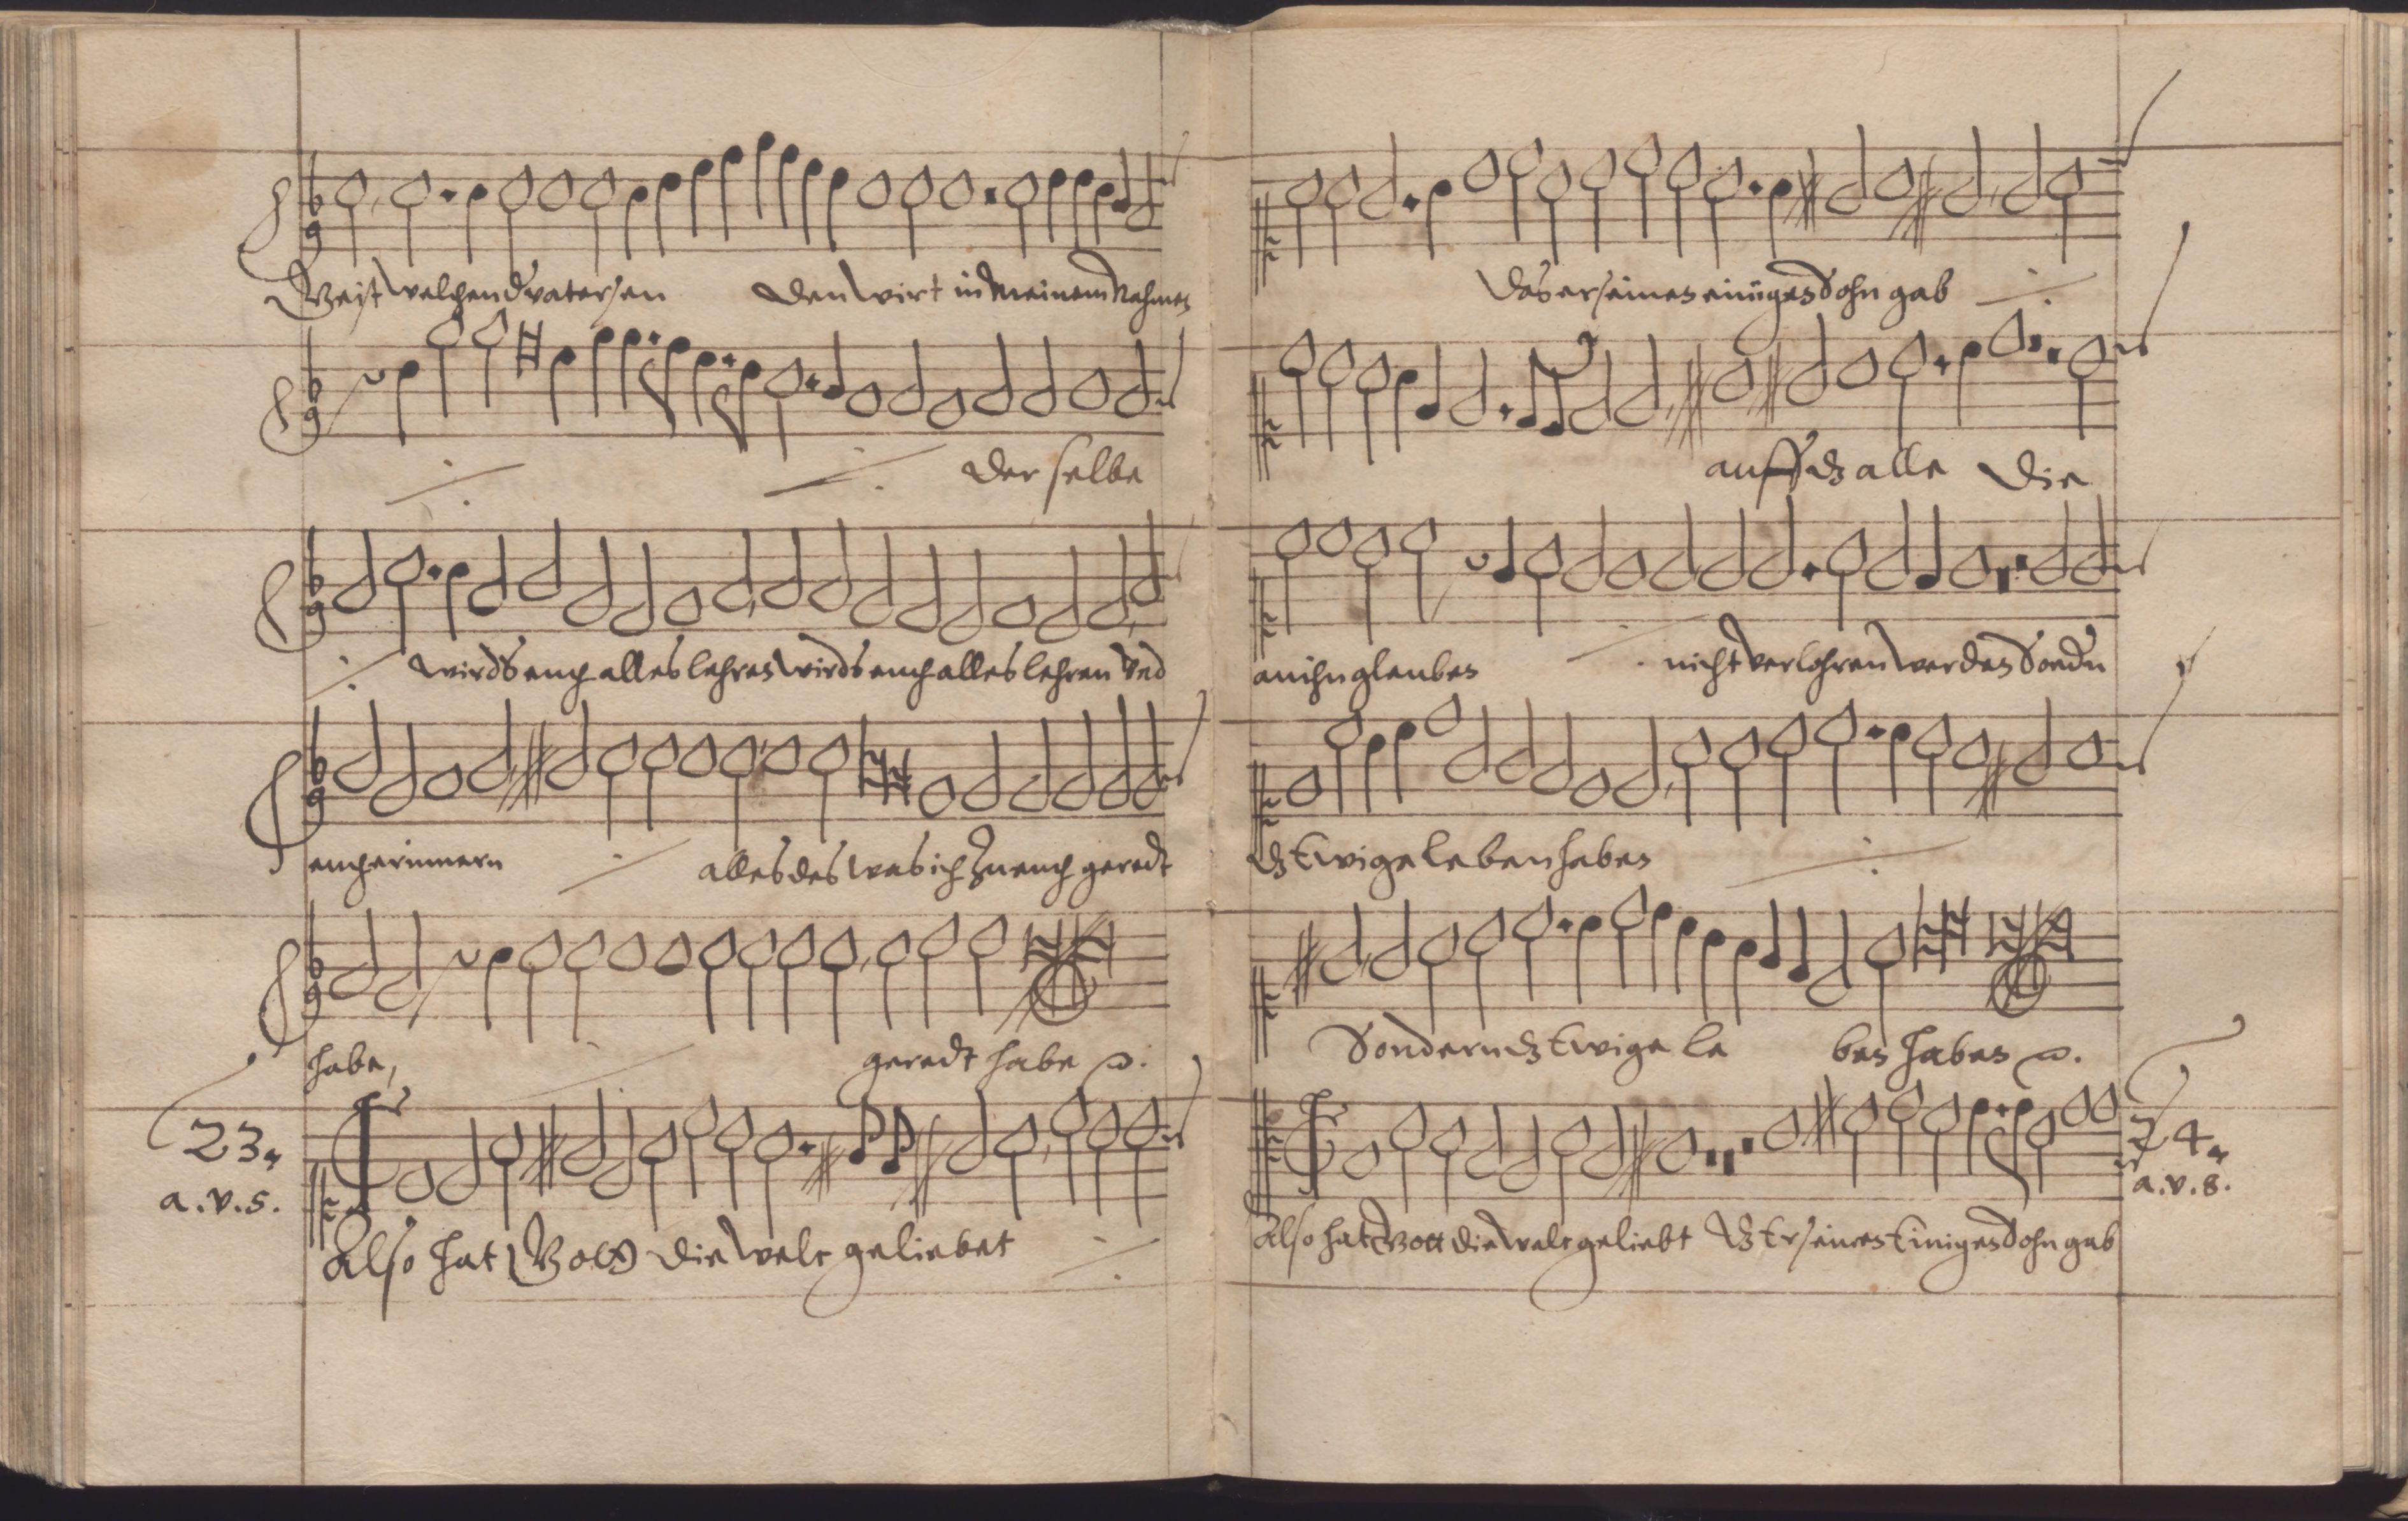 Geist welchen d' vater sen den wirt in meinem Nahmen
der selbe
wirds euch alles lehren wirds euch alles lehren vnd
euch erinnern alles des was ich zu euch geredt
habe, geredt habe
23.
a.v.5.
Also hat Gott die welt geliebet
das er seinen einigen Sohn gab
auff dz alle die
an ihn glauben nicht verlohren werden Sond'n
dz Ewige leben haben
Sondern dz Ewige le ben haben
24.
a.v.8.
Also hat Gott die welt geliebt dz Er seinen Einigen Sohn gab